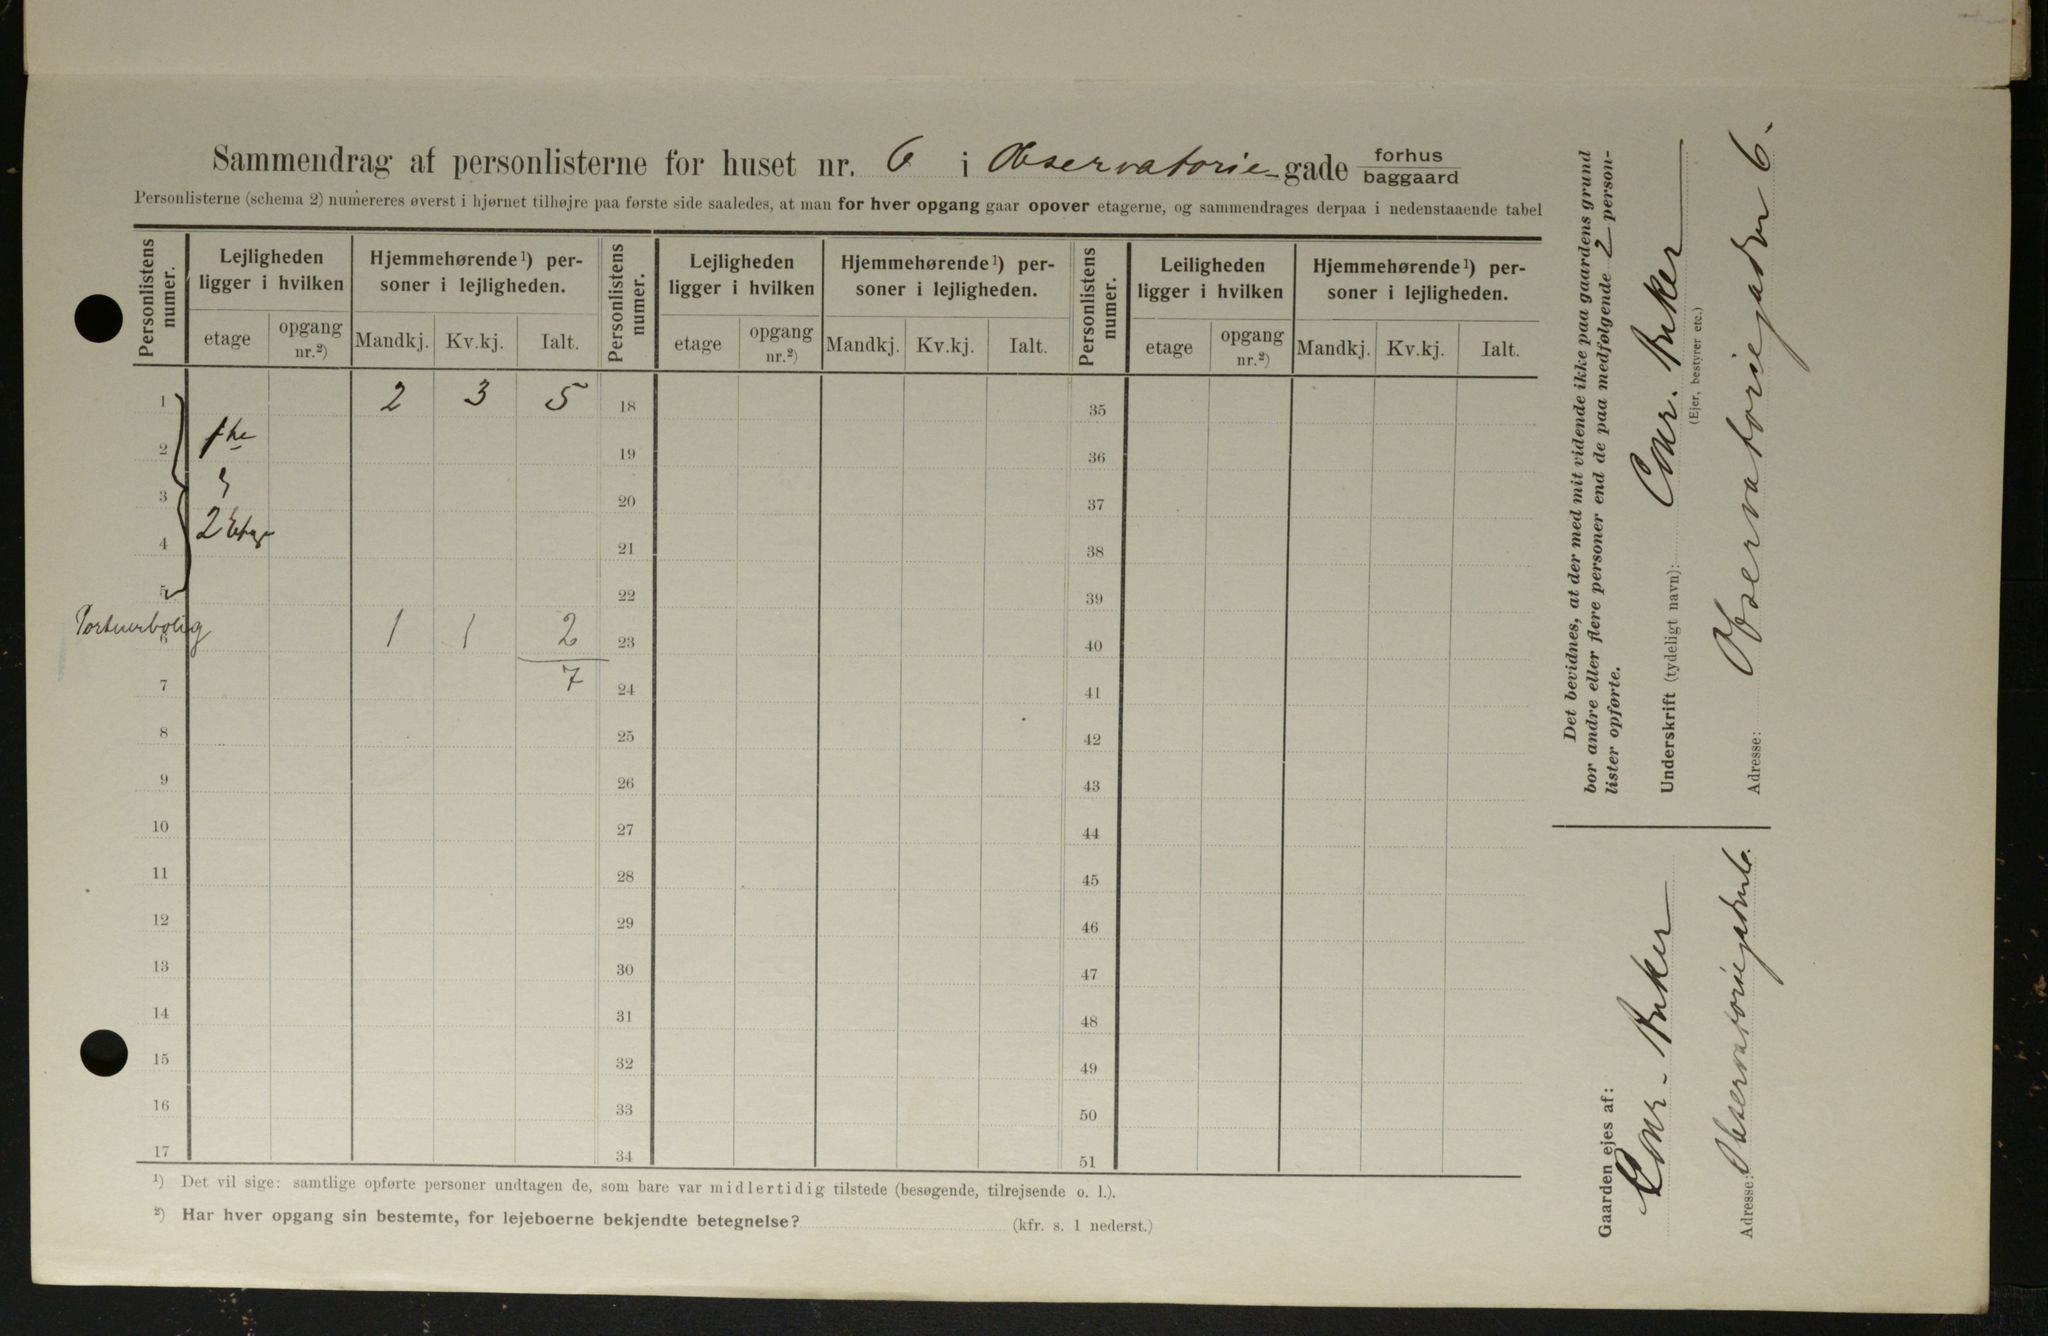 Sammendrag af personlisterne for huset nr. 6 i Observatorie-gade forhus baggaard
Personlisterne (schema 2) numereres øverst i hjørnet tilhøjre paa første side saaledes, at man for hver opgang gaar opover etagerne, og sammendrages derpaa i nedenstaaende tabel
Personlistens numer. Lejligheden ligger i hvilken Hjemmehørende¹) personer i lejligheden. Personlistens numer. Lejligheden ligger i hvilken Hjemmehørende¹) personer i lejligheden. Personlistens numer. Leiligheden ligger i hvilken Hjemmehørende¹) personer i lejligheden.
etage opgang nr.²) Mandkj. Kv.kj. Ialt. etage opgang nr.²) Mandkj. Kv.kj. Ialt. etage opgang nr.²) Mandkj. Kv.kj. Ialt.
1 2 3 5 18 35
2 19 36
3 20 37
4 2 21 38
5 22 39
Portnerbolig
6 1 1 2 23 40
7 7 24 41
8 25 42
9 26 43
10 27 44
11 28 45
12 29 46
13 30 47
14 31 48
15 32 49
16 33 50
17 34 51
¹) Det vil sige: samtlige opførte personer undtagen de, som bare var midlertidig tilstede (besøgende, tilrejsende o. l.).
²) Har hver opgang sin bestemte, for lejeboerne bekjendte betegnelse? (kfr. s. 1 nederst.)
Det bevidnes, at der med mit vidende ikke paa gaardens grund
bor andre eller flere personer end de paa medfølgende 2 person-
lister opførte.
Underskrift (tydeligt navn):
(Ejer, bestyrer etc.)
Adresse: Observatoriegaden 6.
Gaarden ejes af:
Adresse: Observatoriegaden 6.